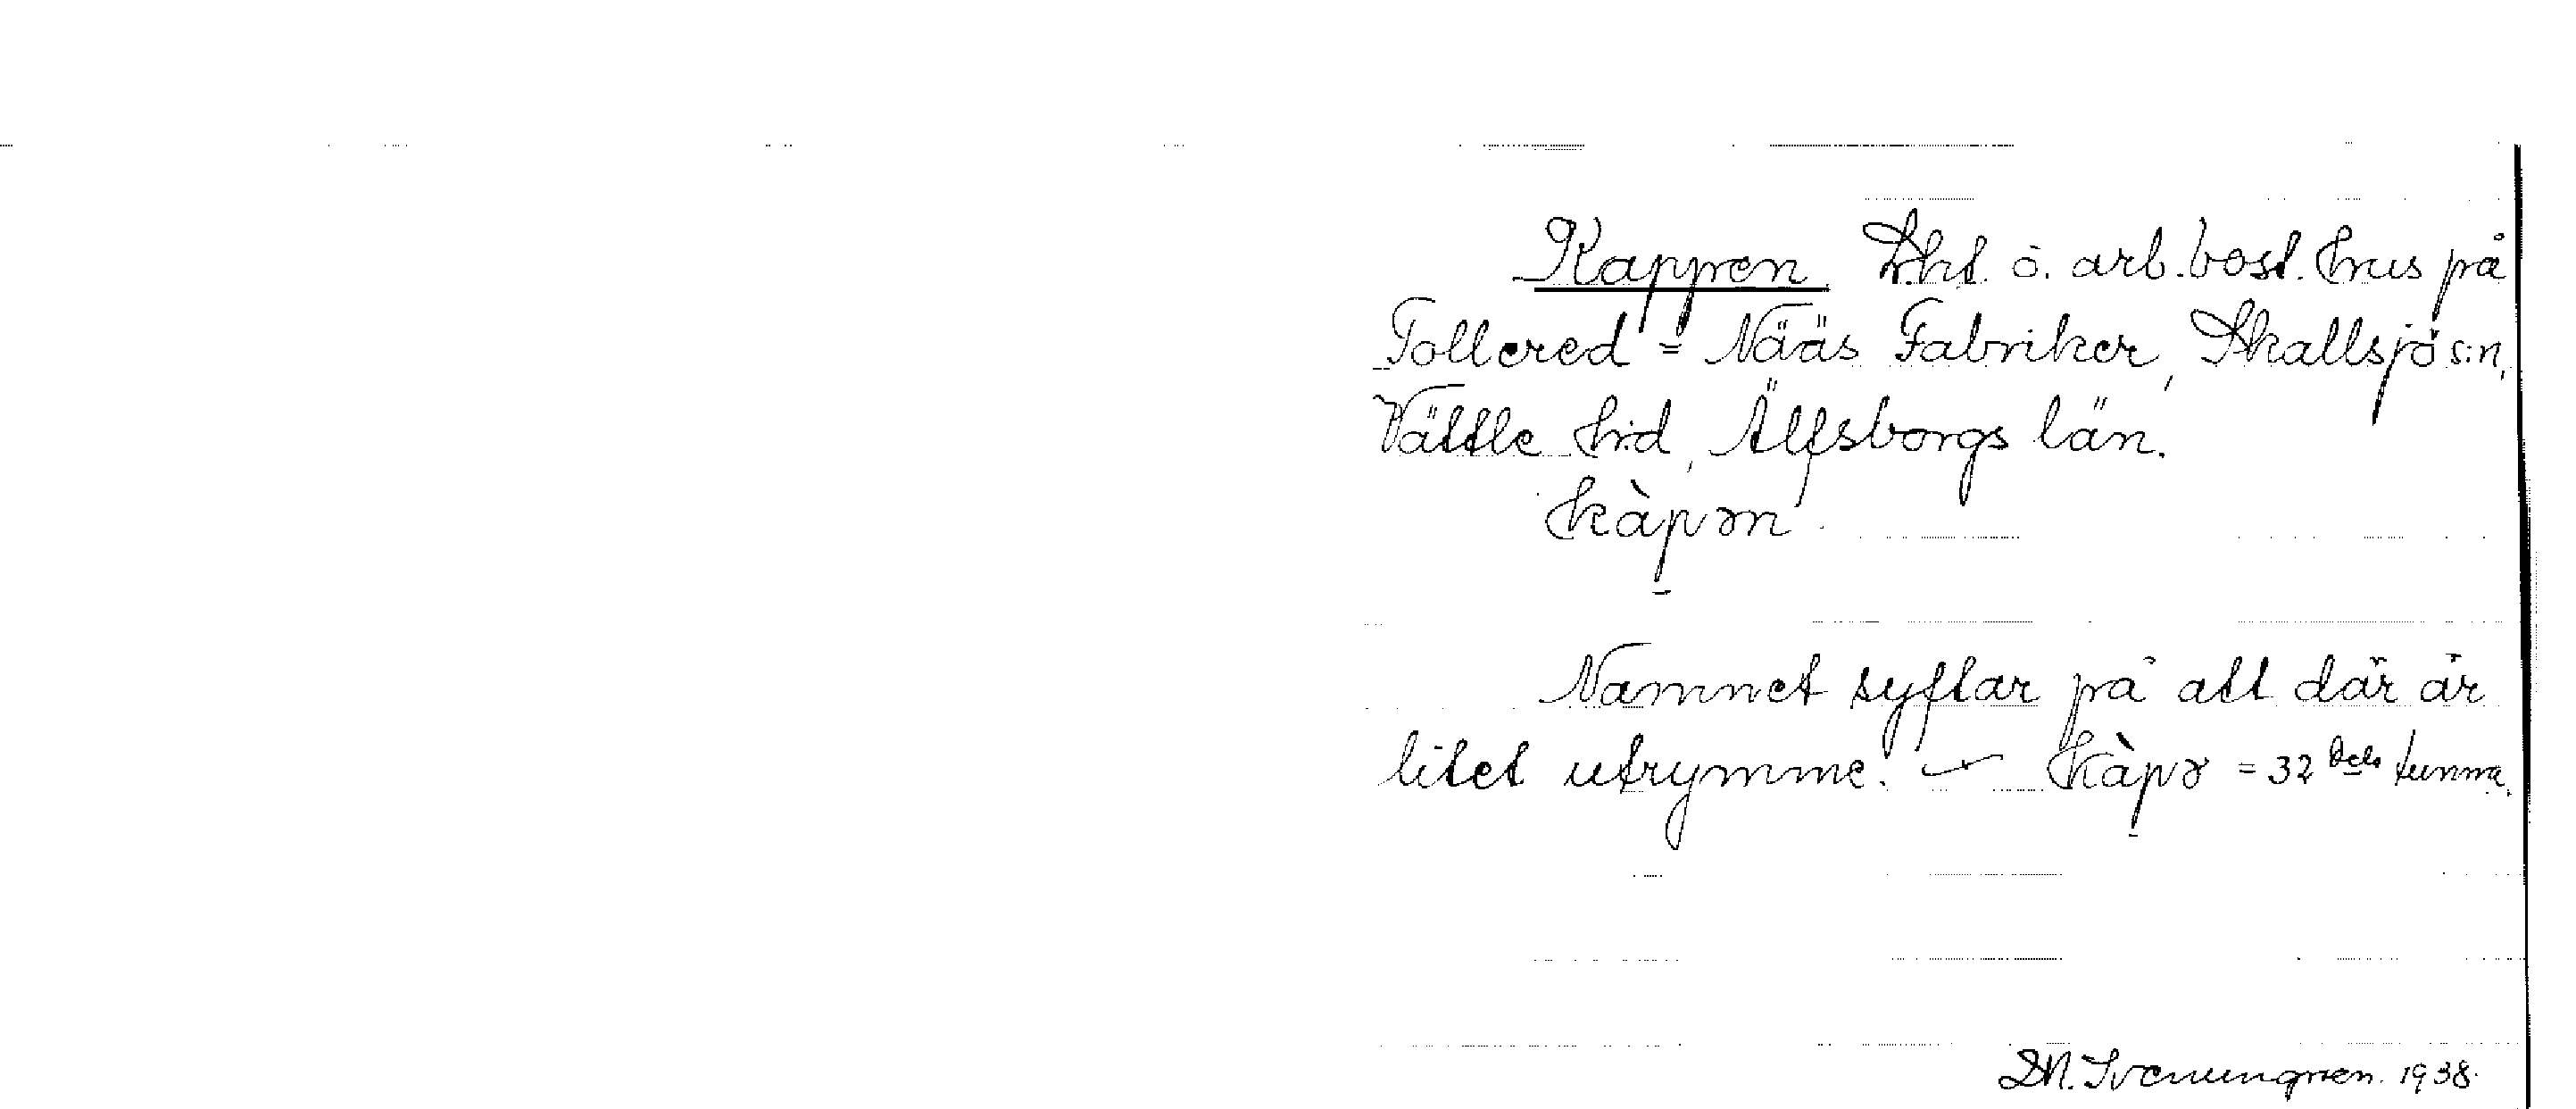 Kappen. Lht. o. arb.bost.hus på
Tollered = Nääs Fabriker, Skallsjö s:n,
Vättle h:d, Älfsborgs län.
kàpən.
Namnet syftar på att där är
litet utrymme. — kàpə = 32 dels tunna.
1938.